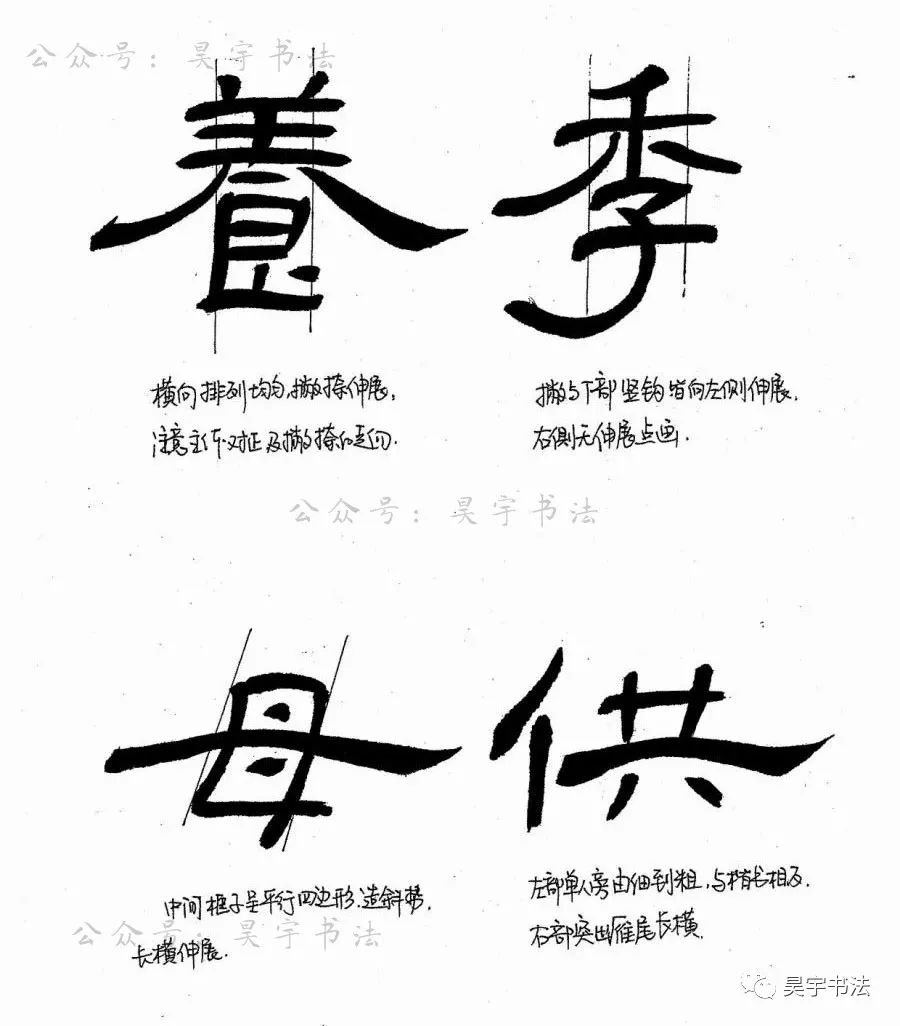 公众号:昊宇书法
養
季
横向排列均匀,撇捺伸展,
注意主体对正及撇捺的走向.
撇与下部竖钩皆向左侧伸展.
右侧无伸展点画.
公众号:昊宇书法
母
供
中间框子呈平行四边形.造斜势.
长横伸展.
左部单人旁由细到粗,与楷书相反.
右部突出雁尾长横.
公众号:昊宇书法
昊宇书法